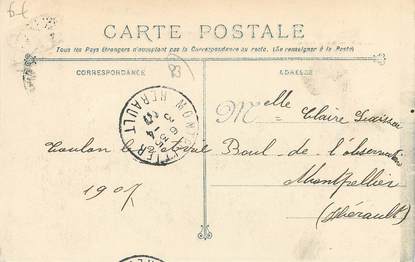 6€
CARTE POSTALE
Tous les Pays étrangers n'acceptent pas la Correspondance au recto. (Se renseigner à la Poste)
CORRESPONDANCE
83
ADRESSE
MONTPELLIER HERAULT
Melle Claire
Toulon le
1907
Boul. de l'observatoire
Montpellier
(Hérault)